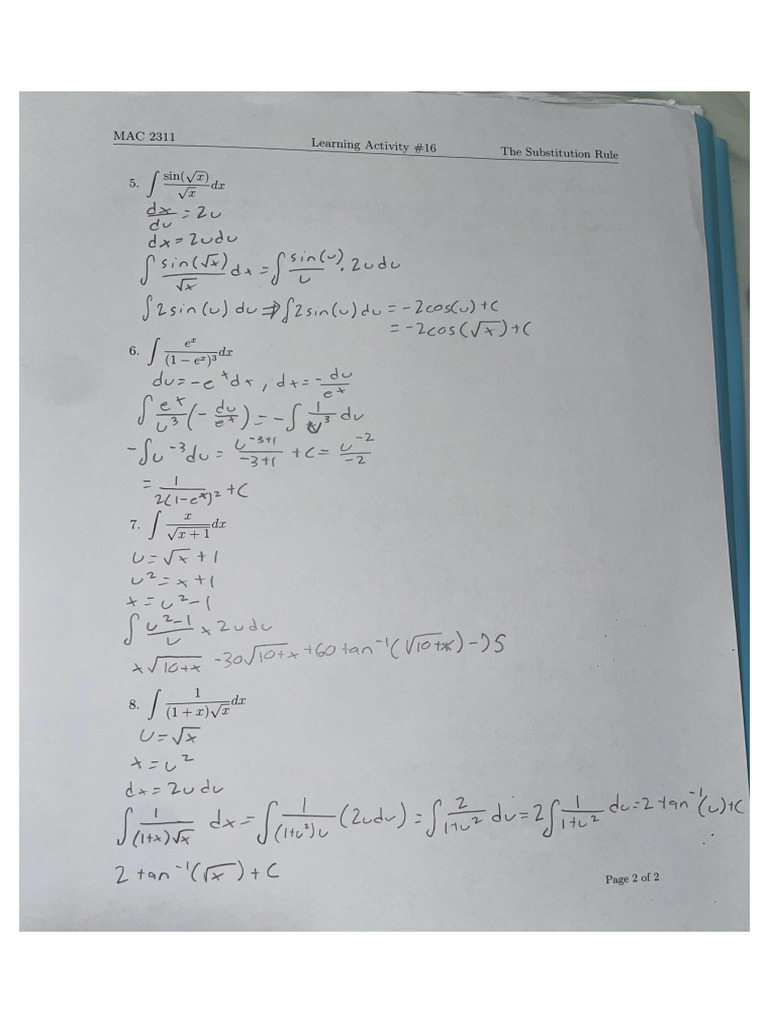 MAC 2311 Learning Activity #16 The Substitution Rule
5. ∫ sin(√x)/√x dx
dx/du = 2u
dx = 2udu
∫ sin(√x)/√x dx = ∫ sin(u)/u · 2udu
∫2sin(u) du ⇒ ∫2sin(u)du = -2cos(u)+C
= -2cos(√x)+C
6. ∫ e^x/(1 − e^x)^3 dx
du = -e^x dx, dx = -du/e^x
∫ e^x/u^3 (-du/e^x) = -∫ 1/u^3 du
-∫u^-3 du = u^(-3+1)/(-3+1) + C = u^-2/-2
= 1/(2(1-e^x)^2) + C
7. ∫ x/√(x + 1) dx
u = √x + 1
u^2 = x + 1
x = u^2 - 1
∫ (u^2-1)/u × 2udu
x√(10+x) -30√(10+x) +60tan^-1(√(10+x)) -75
8. ∫ 1/((1 + x)√x) dx
u = √x
x = u^2
dx = 2udu
∫ 1/((1+x)√x) dx = ∫ 1/((1+u^2)u) (2udu) = ∫ 2/(1+u^2) du = 2∫ 1/(1+u^2) du = 2tan^-1(u)+C
2tan^-1(√x) + C
Page 2 of 2